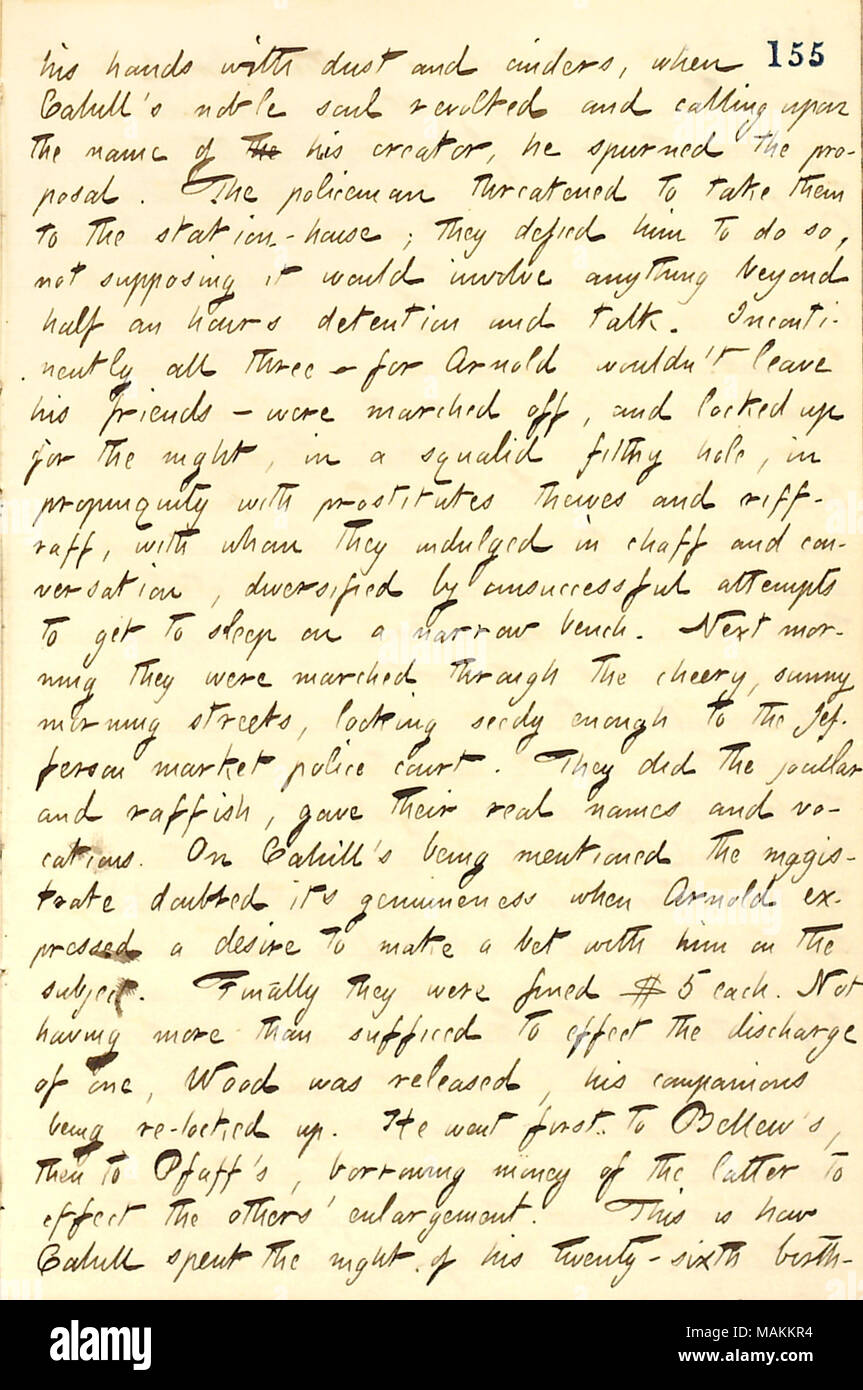 155
his hands with dust and cinders, when
Cahill's noble soul revolted and calling upon
the name of the his creator, he spurned the pro-
posal. The policeman threatened to take them
to the station-house; they defied him to do so,
not supposing it would involve anything beyond
half an hours detention and talk. Inconti-
nently all three — for Arnold wouldn't leave
his friends — were marched off, and locked up
for the night, in a squalid filthy hole, in
propinquity with prostitutes thieves and riff-
raff, with whom they indulged in chaff and con-
versation, diversified by unsuccessful attempts
to get to sleep on a narrow bench. Next mor-
ning they were marched through the cheery, sunny
morning streets, looking seedy enough to the Jef-
ferson market police court. They did the jocular
and raffish, gave their real names and vo-
cations. On Cahill's being mentioned the magis-
trate doubted it's genuineness when Arnold ex-
pressed a desire to make a bet with him on the
subject. Finally they were fined $5 each. Not
having more than sufficed to effect the discharge
of one, Wood was released, his companions
being re-locked up. He went first to Bellew's,
then to Pfaff's, borrowing money of the latter to
effect the others' enlargement. This is how
Cahill spent the night of his twenty-sixth birth-
alamy
Image ID: MAKKR4
www.alamy.com